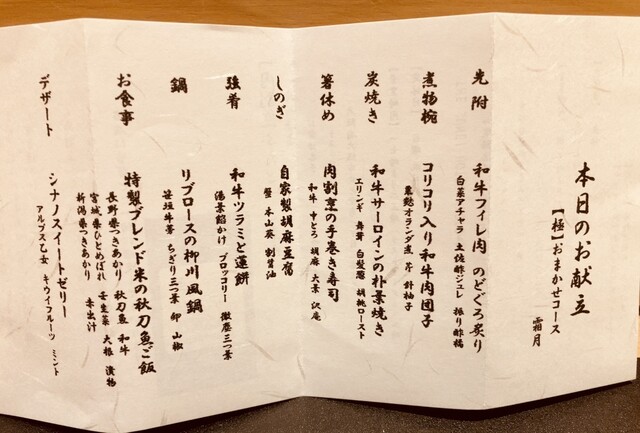 本日のお献立
【極】おまかせコース
霜月
先附
和牛フィレ肉 のどぐろ炙り
白菜アチャラ 土佐酢ジュレ 振り酢橘
煮物椀
コリコリ入り和牛肉団子
粟麩オランダ煮 芹 針柚子
炭焼き
和牛サーロインの朴葉焼き
エリンギ 舞茸 白髪葱 胡桃ロースト
箸休め
肉割烹の手巻き寿司
和牛 中とろ 胡麻 大葉 沢庵
しのぎ
自家製胡麻豆腐
蟹 本山葵 割醤油
強肴
和牛ツラミと蓮餅
湯葉餡かけ ブロッコリー 微塵三つ葉
鍋
リブロースの柳川風鍋
笹垣牛蒡 ちぎり三つ葉 卵 山椒
お食事
特製ブレンド米の秋刀魚ご飯
長野県つきあかり 秋刀魚 和牛
宮城県ひとめぼれ 壬生菜 大根 漬物
新潟県つきあかり 赤出汁
デザート
シナノスイートゼリー
アルプス乙女 キウイフルーツ ミント